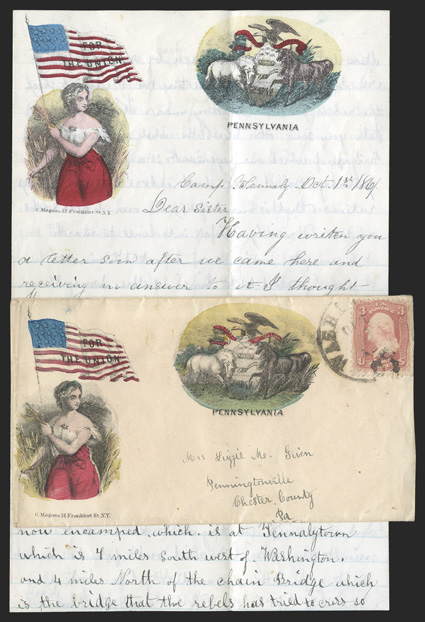 FOR
THE UNION
PENNSYLVANIA
C. Magnus, 12 Frankfort St. N.Y.
Camp Tennaly Oct. 1st 1861
Dear Sister
Having written you
a letter soon after we came here and
receiving no answer to it I thought
FOR
THE UNION
PENNSYLVANIA
3 3
Miss Lizzie Mc. Given
Penningtonville
Chester County
Pa
C. Magnus, 12 Frankfort St. N.Y.
now encamped which is at Tennalytown
which is 7 miles South west of Washington.
and 4 miles North of the chain Bridge which
is the bridge that the rebels has tried to cross so